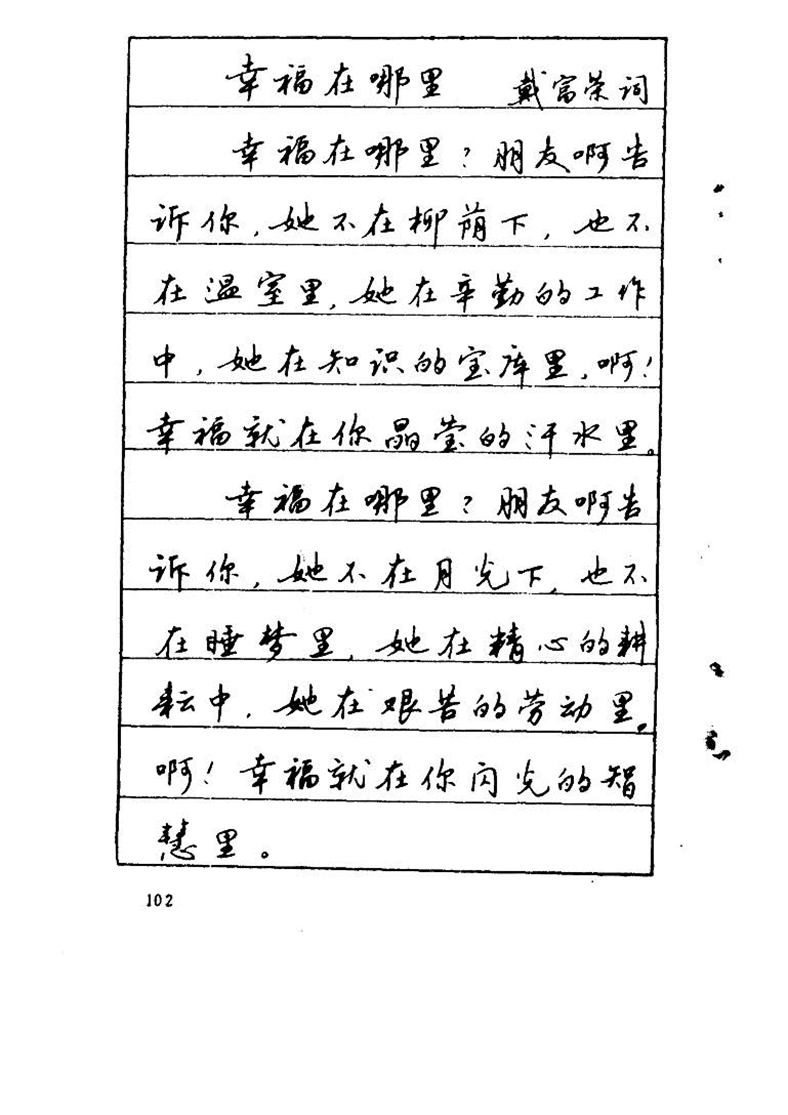 幸福在哪里 戴富荣词
幸福在哪里？朋友啊告
诉你，她不在柳荫下，也不
在温室里，她在辛勤的工作
中，她在知识的宝库里，啊！
幸福就在你晶莹的汗水里。
幸福在哪里？朋友啊告
诉你，她不在月光下，也不
在睡梦里，她在精心的耕
耘中，她在艰苦的劳动里。
啊！幸福就在你闪光的智
慧里。
102